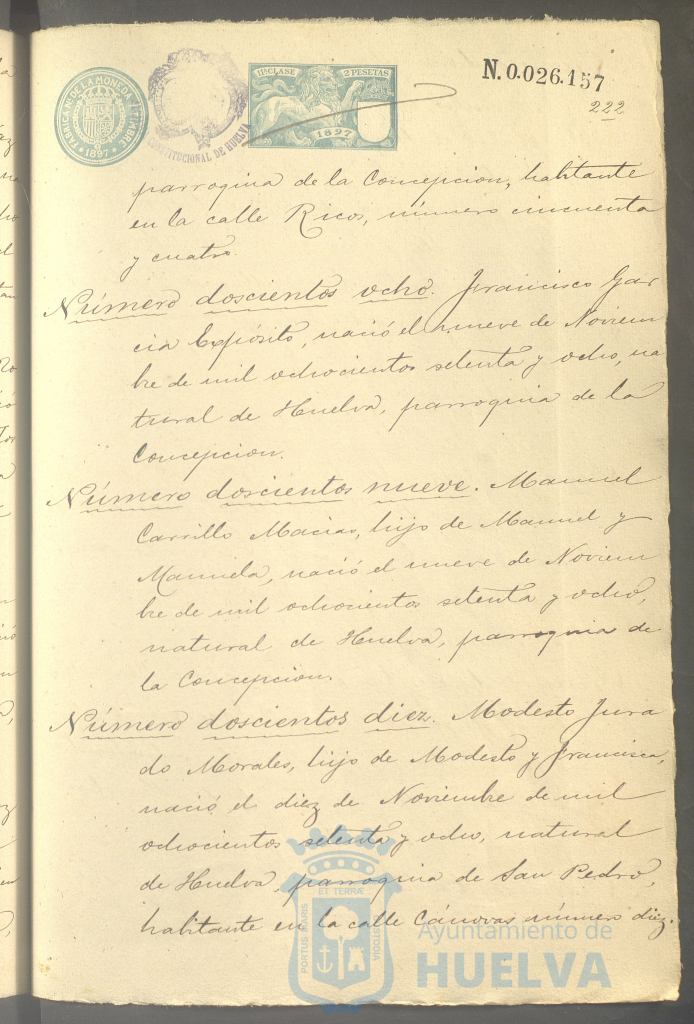 FABRICA N. DE LA MONEDA Y TIMBRE
1897
CONSTITUCIONAL DE HUELVA
11ª CLASE 2 PESETAS
1897
N.0.026.157
222
parroquia de la Concepcion, habitante
en la calle Ricos, número cincuenta
y cuatro.
Número doscientos ocho. Francisco Gar
cia Expósito, nació el nueve de Noviem
bre de mil ochocientos setenta y ocho, na
tural de Huelva, parroquia de la
Concepcion.
Número doscientos nueve. Manuel
Carrillo Macias, hijo de Manuel y
Manuela, nació el nueve de Noviem
bre de mil ochocientos setenta y ocho,
natural de Huelva, parroquia de
la Concepcion.
Número doscientos diez. Modesto Jura
do Morales, hijo de Modesto y Francisca,
nació el diez de Noviembre de mil
ochocientos setenta y ocho, natural
de Huelva, parroquia de San Pedro,
habitante en la calle Cánovas número diez.
PORTUS MARIS ET TERRAE CUSTODIA
Ayuntamiento de
HUELVA